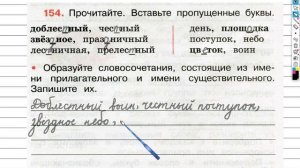 154. Прочитайте. Вставьте пропущенные буквы.
доблестный, честный день, площадка
звёздное, праздничный поступок, небо
лестничная, прелестный цветок, воин
• Образуйте словосочетания, состоящие из име-
ни прилагательного и имени существительного.
Запишите их.
Доблестный воин, честный поступок,
звёздное небо,